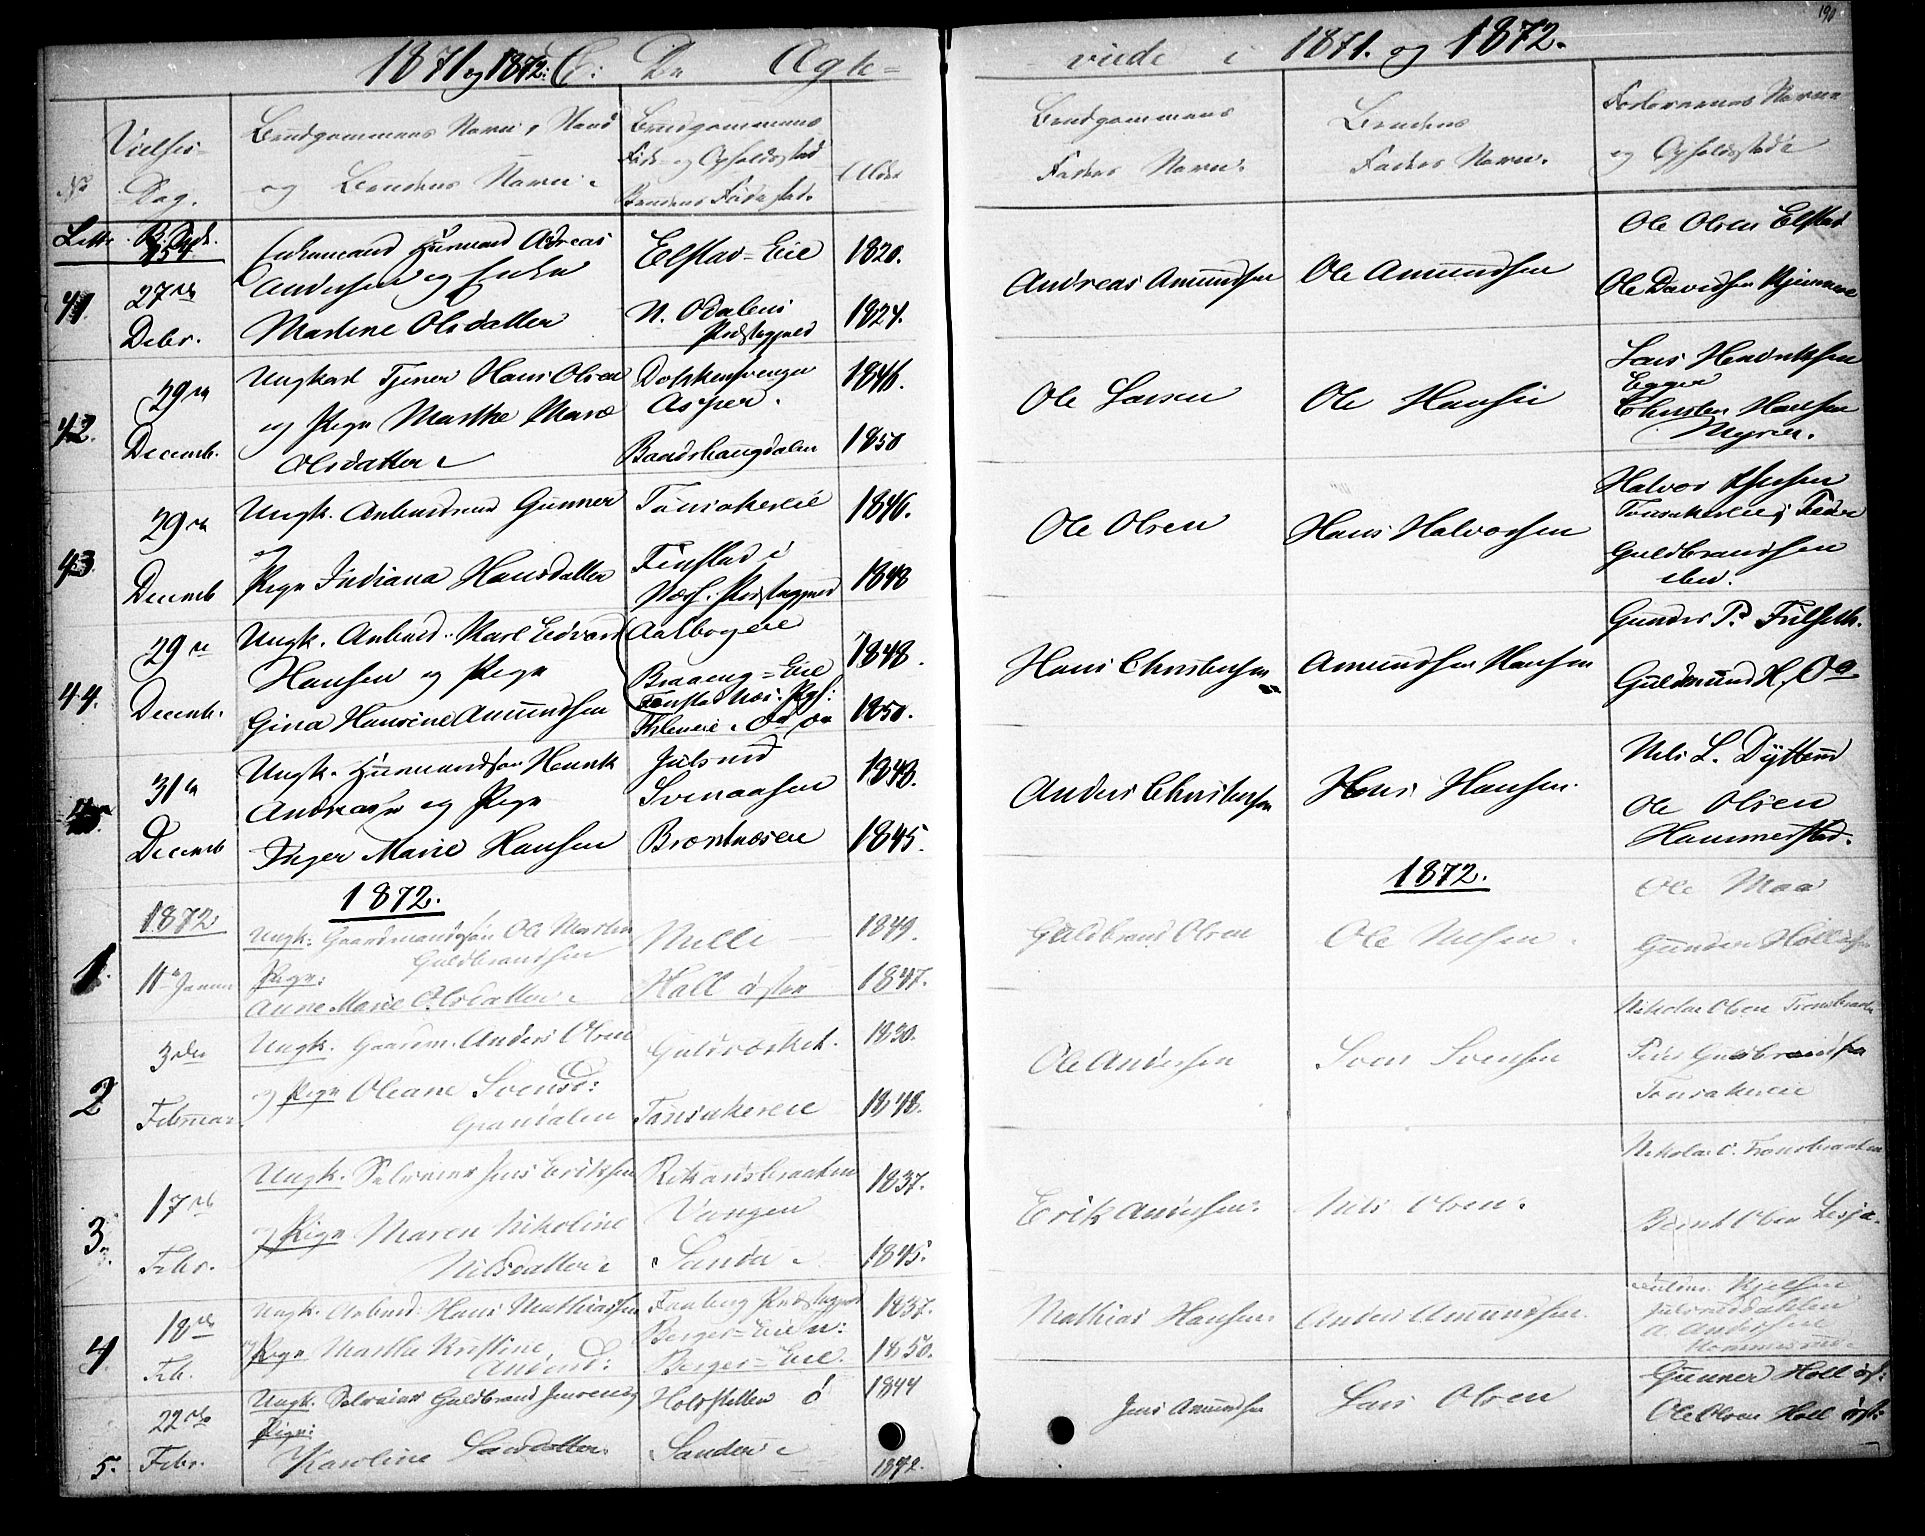 190
1871 og 1872. C: De Ægte-
viede i 1871. og 1872.
No
Vielses-
Dag.
Brudgommens Navn, Stand
og Brudens Navn.
Brudgommens
Føde- og Opholdssted
Brudens Fødested.
Alder
Brudgommens
Faders Navn.
Brudens
Faders Navn.
Forlovernes Navne
og Opholdsstede
41.
27de
Debr.
Enkemand Husmand Andreas
Andersen og Enke
Marlene Olsdatter
Elstad-Eie
N. Odalens
Præstegjeld
1820.
1824.
Andreas Amundsen
Ole Amundsen
Ole Olsen Elstad
Ole Davidsen
42.
29de
Decemb.
Ungkarl Tjener Hans Olsen
og Pige Marthe Marie
Olsdatter
Asper.
Baadshaugdalen
1846.
1850
Ole Larsen
Ole Hansen
Lars Hendriksen
Egger
Christen Hansen
Myrer.
43.
29de
Decemb
Ungk. Arbeidsmd Gunner
og
Pige Indiana Hansdatter
Tønsakereie
Finstad i
Næs. Præstegjeld
1846.
1848
Ole Olsen
Hans Halvorsen
Halvor
Tønsakereie, Peder
Guldbrandsen
ibid.
44.
29de
Decemb.
Ungk. Arbeid. Karl Edvard
Hansen og Pige
Gina Hansine Amundsen
Aalbogeie
Braaeng-Eie
1848.
1850.
Hans Christensen
Amundsen Hansen
Gunder P. Fulseth.
Guldmund H. Oa
45.
31te
Decemb
Ungk. Husmandssøn Henrik
Andreas og Pige
Inger Marie Hansen
Julsrud
Svenaasen
Brostnæseie
1848.
1845.
Anders Christensen
Hans Hansen.
Nils L. Dytterud
Ole Olsen
Hammerstad.
1872.
1872.
1872
1.
11te Januar
Ungk: Gaardmandssøn Ole Martin
Guldbrandsen
Pige:
Anne Marie Olsdatter
Nulli
Holl østre
1849.
1847.
Guldbrand Olsen
Ole Nilsen.
Ole Maa
Gunder Holl
2
3die
Februar
Ungk. Gaardm. Anders Olsen
og Pige Oleane Svensd:
Grandalen
Guldværket.
Tønsakereie
1830.
1848.
Ole Andersen
Sven Svensen
Nikolai Olsen Tronsbraaten
Guldbrandsen
Tønsakereie
3.
17de
Febr.
Ungk. Selveier Jens Eriksen
og Pige Maren Nikoline
Nilsdatter
Rikardsbraaten
Vangen
Sanda
1837.
1845.
Erik Andersen.
Nils Olsen.
Nikolai O. Tronsbraaten
Bernt Olsen
4
18de
Fb.
Ungk. Arbeid. Hans Mathiassen
og Pige Marthe Kristine
Andersd:
Faaberg Præstegjeld
Berger-Eie n:
Berger-Eie.
1837.
1850.
Mathias Hansen.
Anders Amundsen.
Kjelsen
Julsrudbakken
A. Andersen
5.
22de
Febr.
Ungk. Selveier Guldbrand Jensen og
Pige:
Karoline Larsdatter.
Holstellen ö
Sanden
1844
1872.
Jens Amundsen
Lars Olsen
Gunner Holl øst:
Ole Olsen Holl øst: